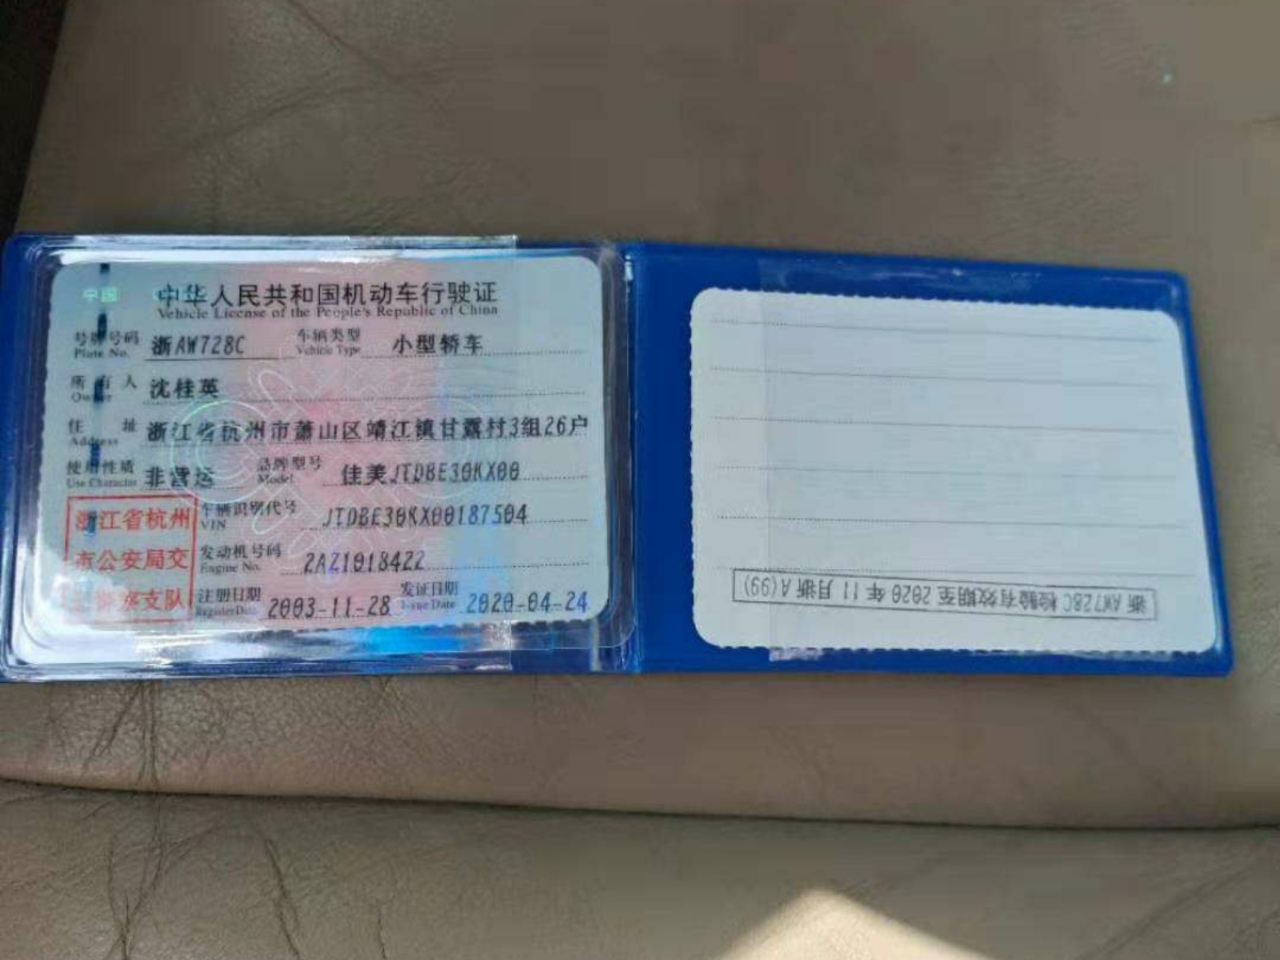 中国
中华人民共和国机动车行驶证
Vehicle License of the People's Republic of China
号牌号码 浙AW728C 车辆类型 小型轿车
Plate No. Vehicle Type
所有人 沈桂英
Owner
住址 浙江省杭州市萧山区靖江镇甘露村3组26户
Address
使用性质 非营运 品牌型号 佳美JTDBE30KX00
Use Character Model
浙江省杭州 车辆识别代号 JTDBE30KX00187504
VIN
市公安局交 发动机号码 2AZ1018422
Engine No.
警察支队 注册日期 2003-11-28 发证日期 2020-04-24
Register Date Issue Date
浙AW728C 检验有效期至2020年11月浙A(99)